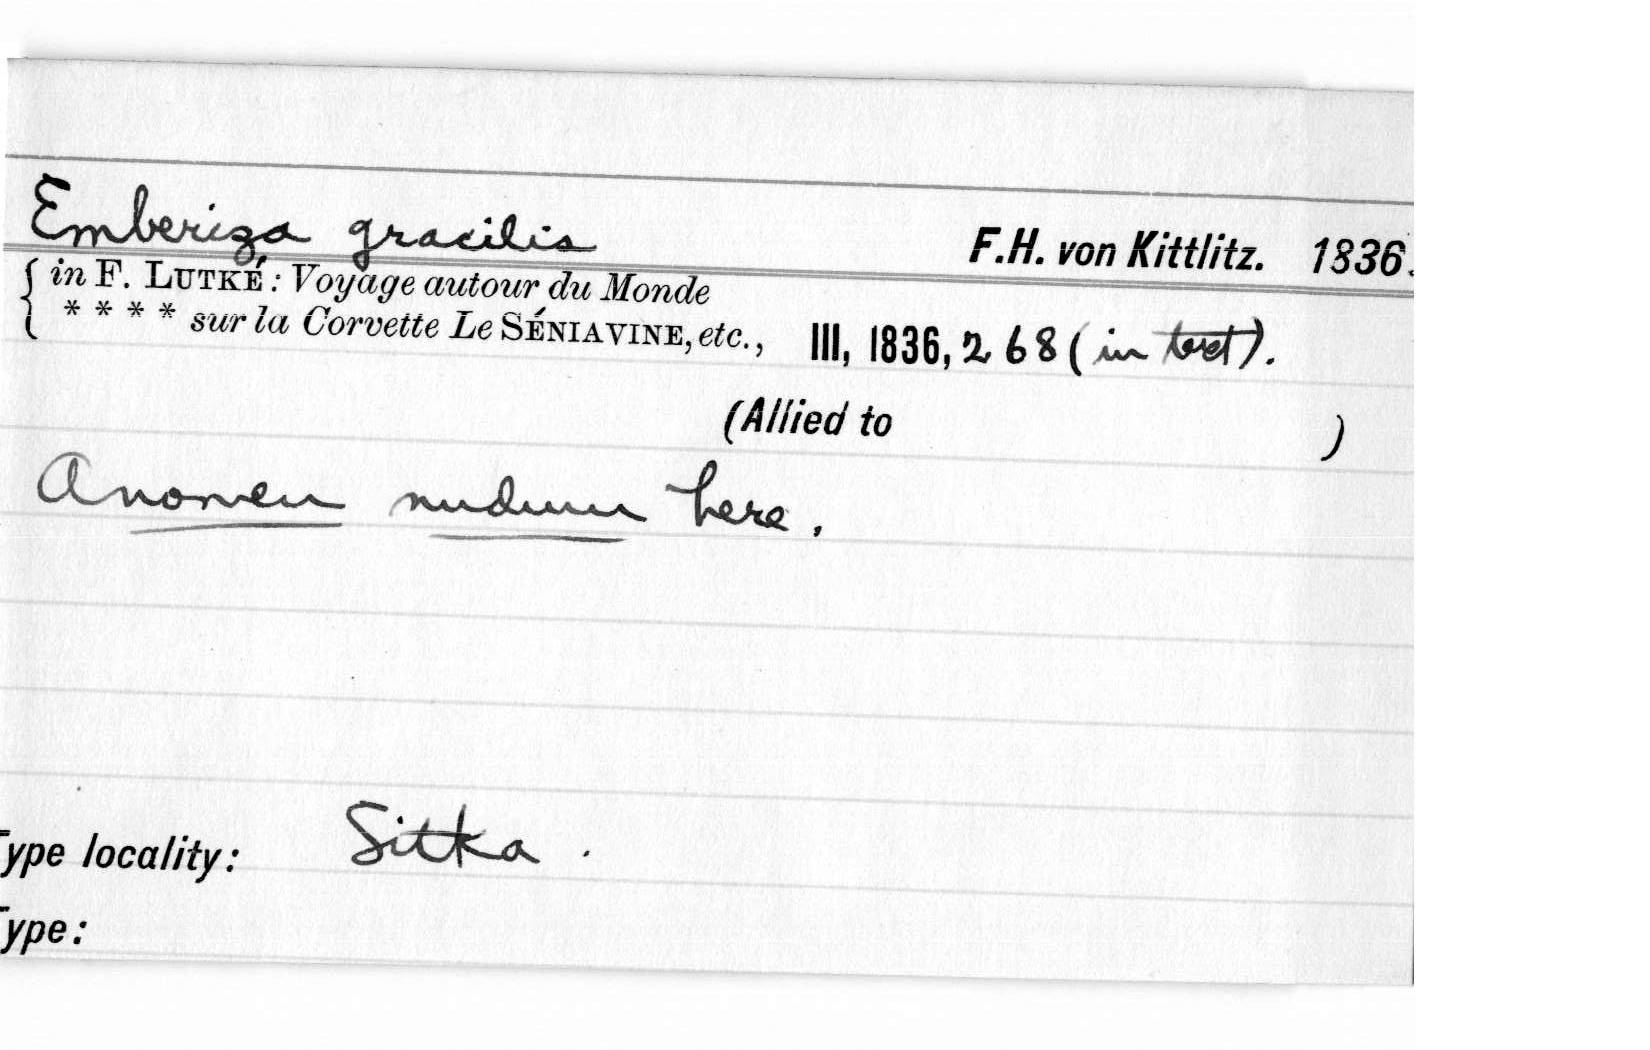 Emberiza gracilis F.H. von Kittlitz. 1836.
{ in F. LUTKÉ: Voyage autour du Monde
* * * * sur la Corvette Le SÉNIAVINE, etc., III, 1836, 268 (in text).
(Allied to )
A nomen nudum here.
Type locality: Sitka.
Type: